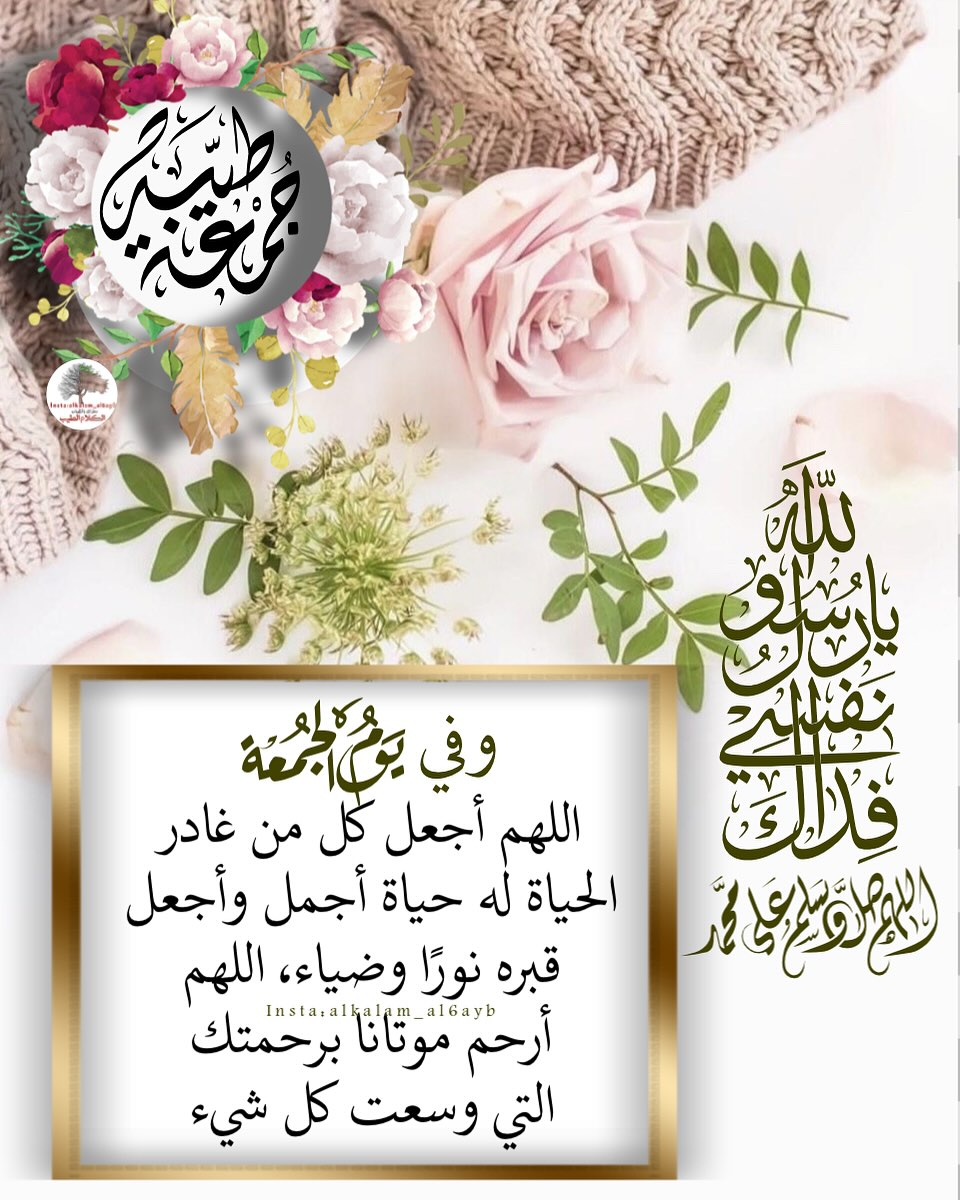 جُمُعَة
طيِّبة
Insta:alkalam_al6ayb
الكلام الطيب
يا رَسُولَ الله
نَفْسِي
فِدَاكَ
اللهم صل وسلم على محمد
وفي يَومُ الجُمُعة
اللهم أجعل كل من غادر
الحياة له حياة أجمل وأجعل
قبره نورًا وضياء، اللهم
Insta:alkalam_al6ayb
أرحم موتانا برحمتك
التي وسعت كل شيء